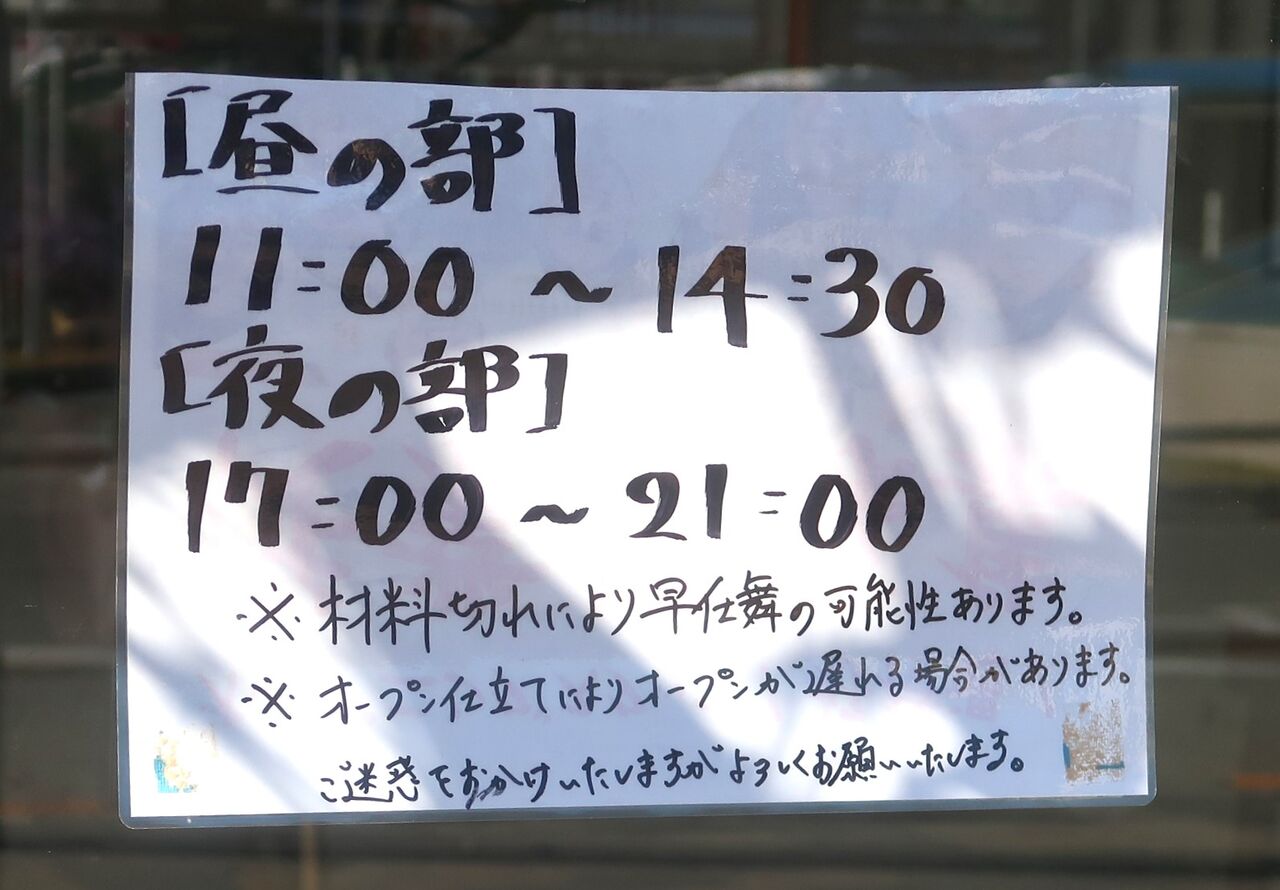 [昼の部]
11:00 ~ 14:30
[夜の部]
17:00 ~ 21:00
※ 材料切れにより早仕舞の可能性あります。
※ オープン仕立てによりオープンが遅れる場合があります。
ご迷惑をおかけいたしますがよろしくお願いいたします。